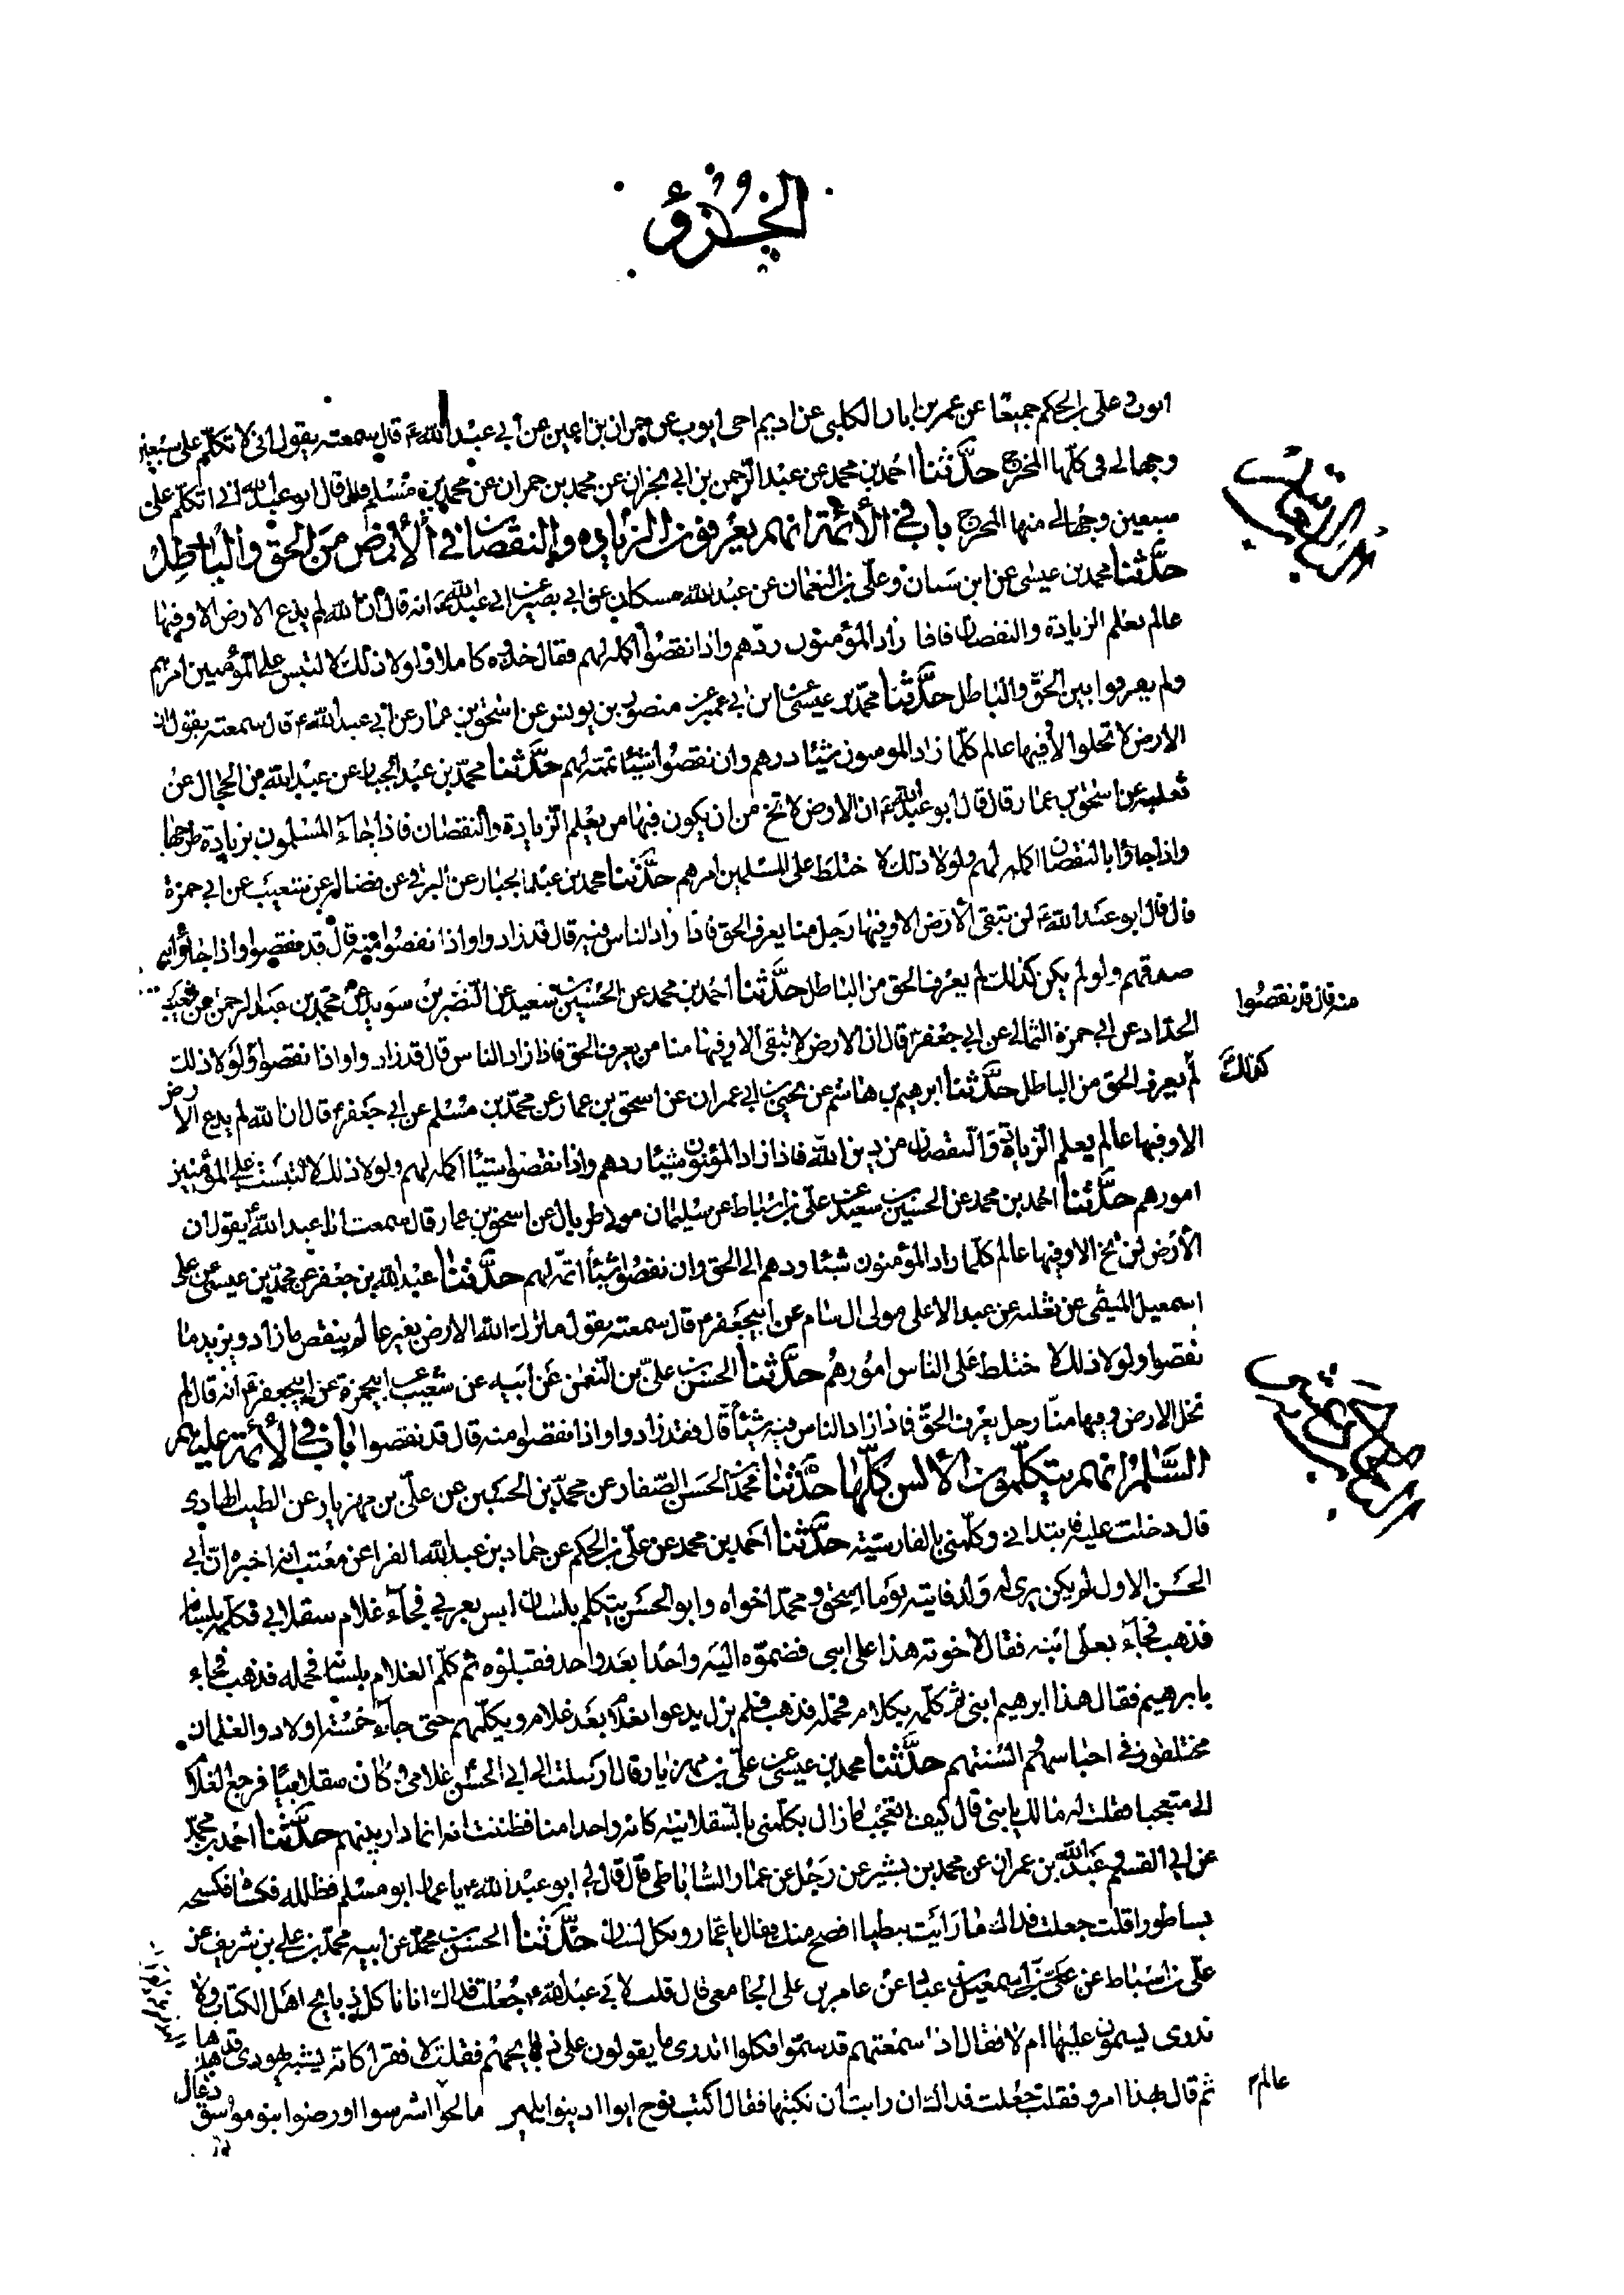 الجزؤ
ايوب و على بن الحكم جميعا عن عمر بن ابان الكلبى عن اديم اخى ايوب عن حمران بن اعين عن أبي عبد الله ع قال سمعته يقول انى لاتكلم على سبعين
وجها لى فى كلها المخرج حدثنا احمد بن محمد عن عبد الرحمن بن ابى نجران عن محمد بن حمران عن محمد بن مسلم قال قال ابو عبد الله انى اتكلم على
سبعين وجها لى منها المخرج باب في الأئمة انهم يعرفون الزيادة والنقصان في الأرض من الحق والباطل
حدثنا محمد بن عيسى عن ابن سنان وعلى بن النعمان عن عبد الله مسكان عن ابي بصير عن ابى عبد الله ع انه قال ان الله لم يدع الارض الا وفيها
عالم يعلم الزيادة والنقصان فاذا زاد المؤمنون ردهم واذا نقصوا اكمله لهم فقال خذوه كاملا ولولا ذلك لالتبس على المؤمنين امرهم
ولم يعرفوا بين الحق والباطل حدثنا محمد بن عيسى عن ابن ابي عمير عن منصور بن يونس عن اسحق بن عمار عن ابي عبد الله ع قال سمعته يقول ان
الارض لا تخلوا الا وفيها عالم كلما زاد المومنون شيئا ردهم وان نقصوا شيئا تممه لهم حدثنا محمد بن عبد الجبار عن عبد الله بن الحجال عن
ثعلبه عن اسحق بن عمار قال قال ابو عبد الله ع ان الارض لا تخ من ان يكون فيها من يعلم الزيادة والنقصان فاذا جاء المسلمون بزيادة طرحها
واذا جاؤا بالنقصان اكمله لهم ولولا ذلك لا ختلط على المسلمين امرهم حدثنا محمد بن عبد الجبار عن البرقى عن فضاله عن شعيب عن ابي حمزة
قال قال ابو عبد الله ع لن تبقى الأرض الا وفيها رجل منا يعرف الحق فاذا زاد الناس فيه قال قد زادوا واذا نقصوا منه قال قد نقصوا واذا جاؤا به
صدقهم ولو لم يكن كذلك لم يعرف الحق من الباطل حدثنا احمد بن محمد عن الحسين بن سعيد عن النضر بن سويد عن محمد بن عبد الرحمن عن شعيب
منه قال قد نقصوا
الحداد عن ابى حمزة الثمالى عن ابى جعفر ع قال ان الارض لا تبقى الا وفيها منا من يعرف الحق فاذا زاد الناس قال قد زادوا واذا نقصوا ولولا ذلك
كذلك
لم يعرف الحق من الباطل حدثنا ابرهيم بن هاشم عن يحيى بن ابى عمران عن اسحق بن عمار عن محمد بن مسلم عن ابى جعفر ع قال ان الله لم يدع الارض
الا وفيها عالم يعلم الزيادة والنقصان من دين الله فاذا زاد المؤمنون شيئا ردهم واذا نقصوا شيئا اكمله لهم ولولا ذلك لالتبست على المؤمنين
امورهم حدثنا احمد بن محمد عن الحسين بن سعيد عن على بن اسباط عن سليمان مولى طربال عن اسحق بن عمار قال سمعت ابا عبد الله ع يقول ان
الأرض لن تخ الا وفيها عالم كلما زاد المؤمنون شيئا ردهم الى الحق وان نقصوا شيئا اتمه لهم حدثنا عبد الله بن جعفر عن محمد بن عيسى عن على
اسمعيل الميثمى عن ثعلبه عن عبد الاعلى مولى ال سام عن ابيجعفر ع قال سمعته يقول ما ترك الله الارض بغير عالم ينقص ما زاد ويزيد ما
نقصوا ولولا ذلك لا ختلط على الناس امورهم حدثنا الحسن بن على بن النعمن عن ابيه عن شعيب عن ابيحمزة عن ابيجعفر ع انه قال لم
تخل الارض وفيها منا رجل يعرف الحق فاذا زاد الناس فيه شيئا قال فقد زادوا واذا نقصوا منه قال قد نقصوا باب في الأئمة عليهم
السلم انهم يتكلمون الألسن كلها حدثنا محمد بن الحسن الصفار عن محمد بن الحسين عن على بن مهزيار عن الطيب الهادى
قال دخلت عليه فابتدانى وكلمنى بالفارسية حدثنا احمد بن محمد عن على بن الحكم عن حماد بن عبد الله الفرا عن معتب انه اخبره ان ابى
الحسن الاول لم يكن يرى له ولد فاتيته يوما اسحق و محمد اخواه وابو الحسن يتكلم بلسان ليس بعربي فجاء غلام سقلابى فكلمه بلسانه
فذهب فجاء بعلى ابنه فقال لاخوته هذا على ابنى فضموه اليه واحدا بعد واحد فقبلوه ثم كلم الغلام بلسانه فحمله فذهب فجاء
بابرهيم فقال هذا ابرهيم ابنى ثم كلمه بكلام فحمله فذهب فلم يزل يدعوا بغلام بعد غلام ويكلمهم حتى جاء خمسة اولاد والغلمان
مختلفون فى اجناسهم و السنتهم حدثنا محمد بن عيسى عن على بن مهزيار قال ارسلت الى ابى الحسن غلامى و كان سقلابيا فرجع الغلام
الى متعجبا فقلت له مالك يا بنى قال كيف لا اتعجب ما زال يكلمنى بالسقلابيه كانه واحد منا فظننت انه انما دار بينهم حدثنا احمد بن محمد
عن ابى القسم و عبد الله بن عمران عن محمد بن بشير عن رجل عن عمار الساباطى قال قال لى ابو عبد الله ع يا عمار ابو مسلم فظلله فكسا فكسحه
بساطورا قلت جعلت فداك ما رايت نبطيا افصح منك فقال يا عمار وبكل لسان حدثنا الحسن بن محمد عن ابيه محمد بن على بن شريف عن
على بن اسباط عن اسمعيل بن عباد عن عامر بن على الجامعى قال قلت لابى عبد الله ع جعلت فداك انا ناكل ذبايح اهل الكتاب ولا
ندرى يسمون عليها ام لا فقال اذا سمعتهم قد سموا فكلوا اتدرى ما يقولون على ذبايحهم فقلت لا فقرا كانه يشبه يهودى قد هذها
ثم قال بهذا امروا فقلت جعلت فداك ان رايت ان نكتبها فقال اكتب نوح ايوا ادينوا يلهيز مالحوا اشرسوا اورضوا بنو
عالم